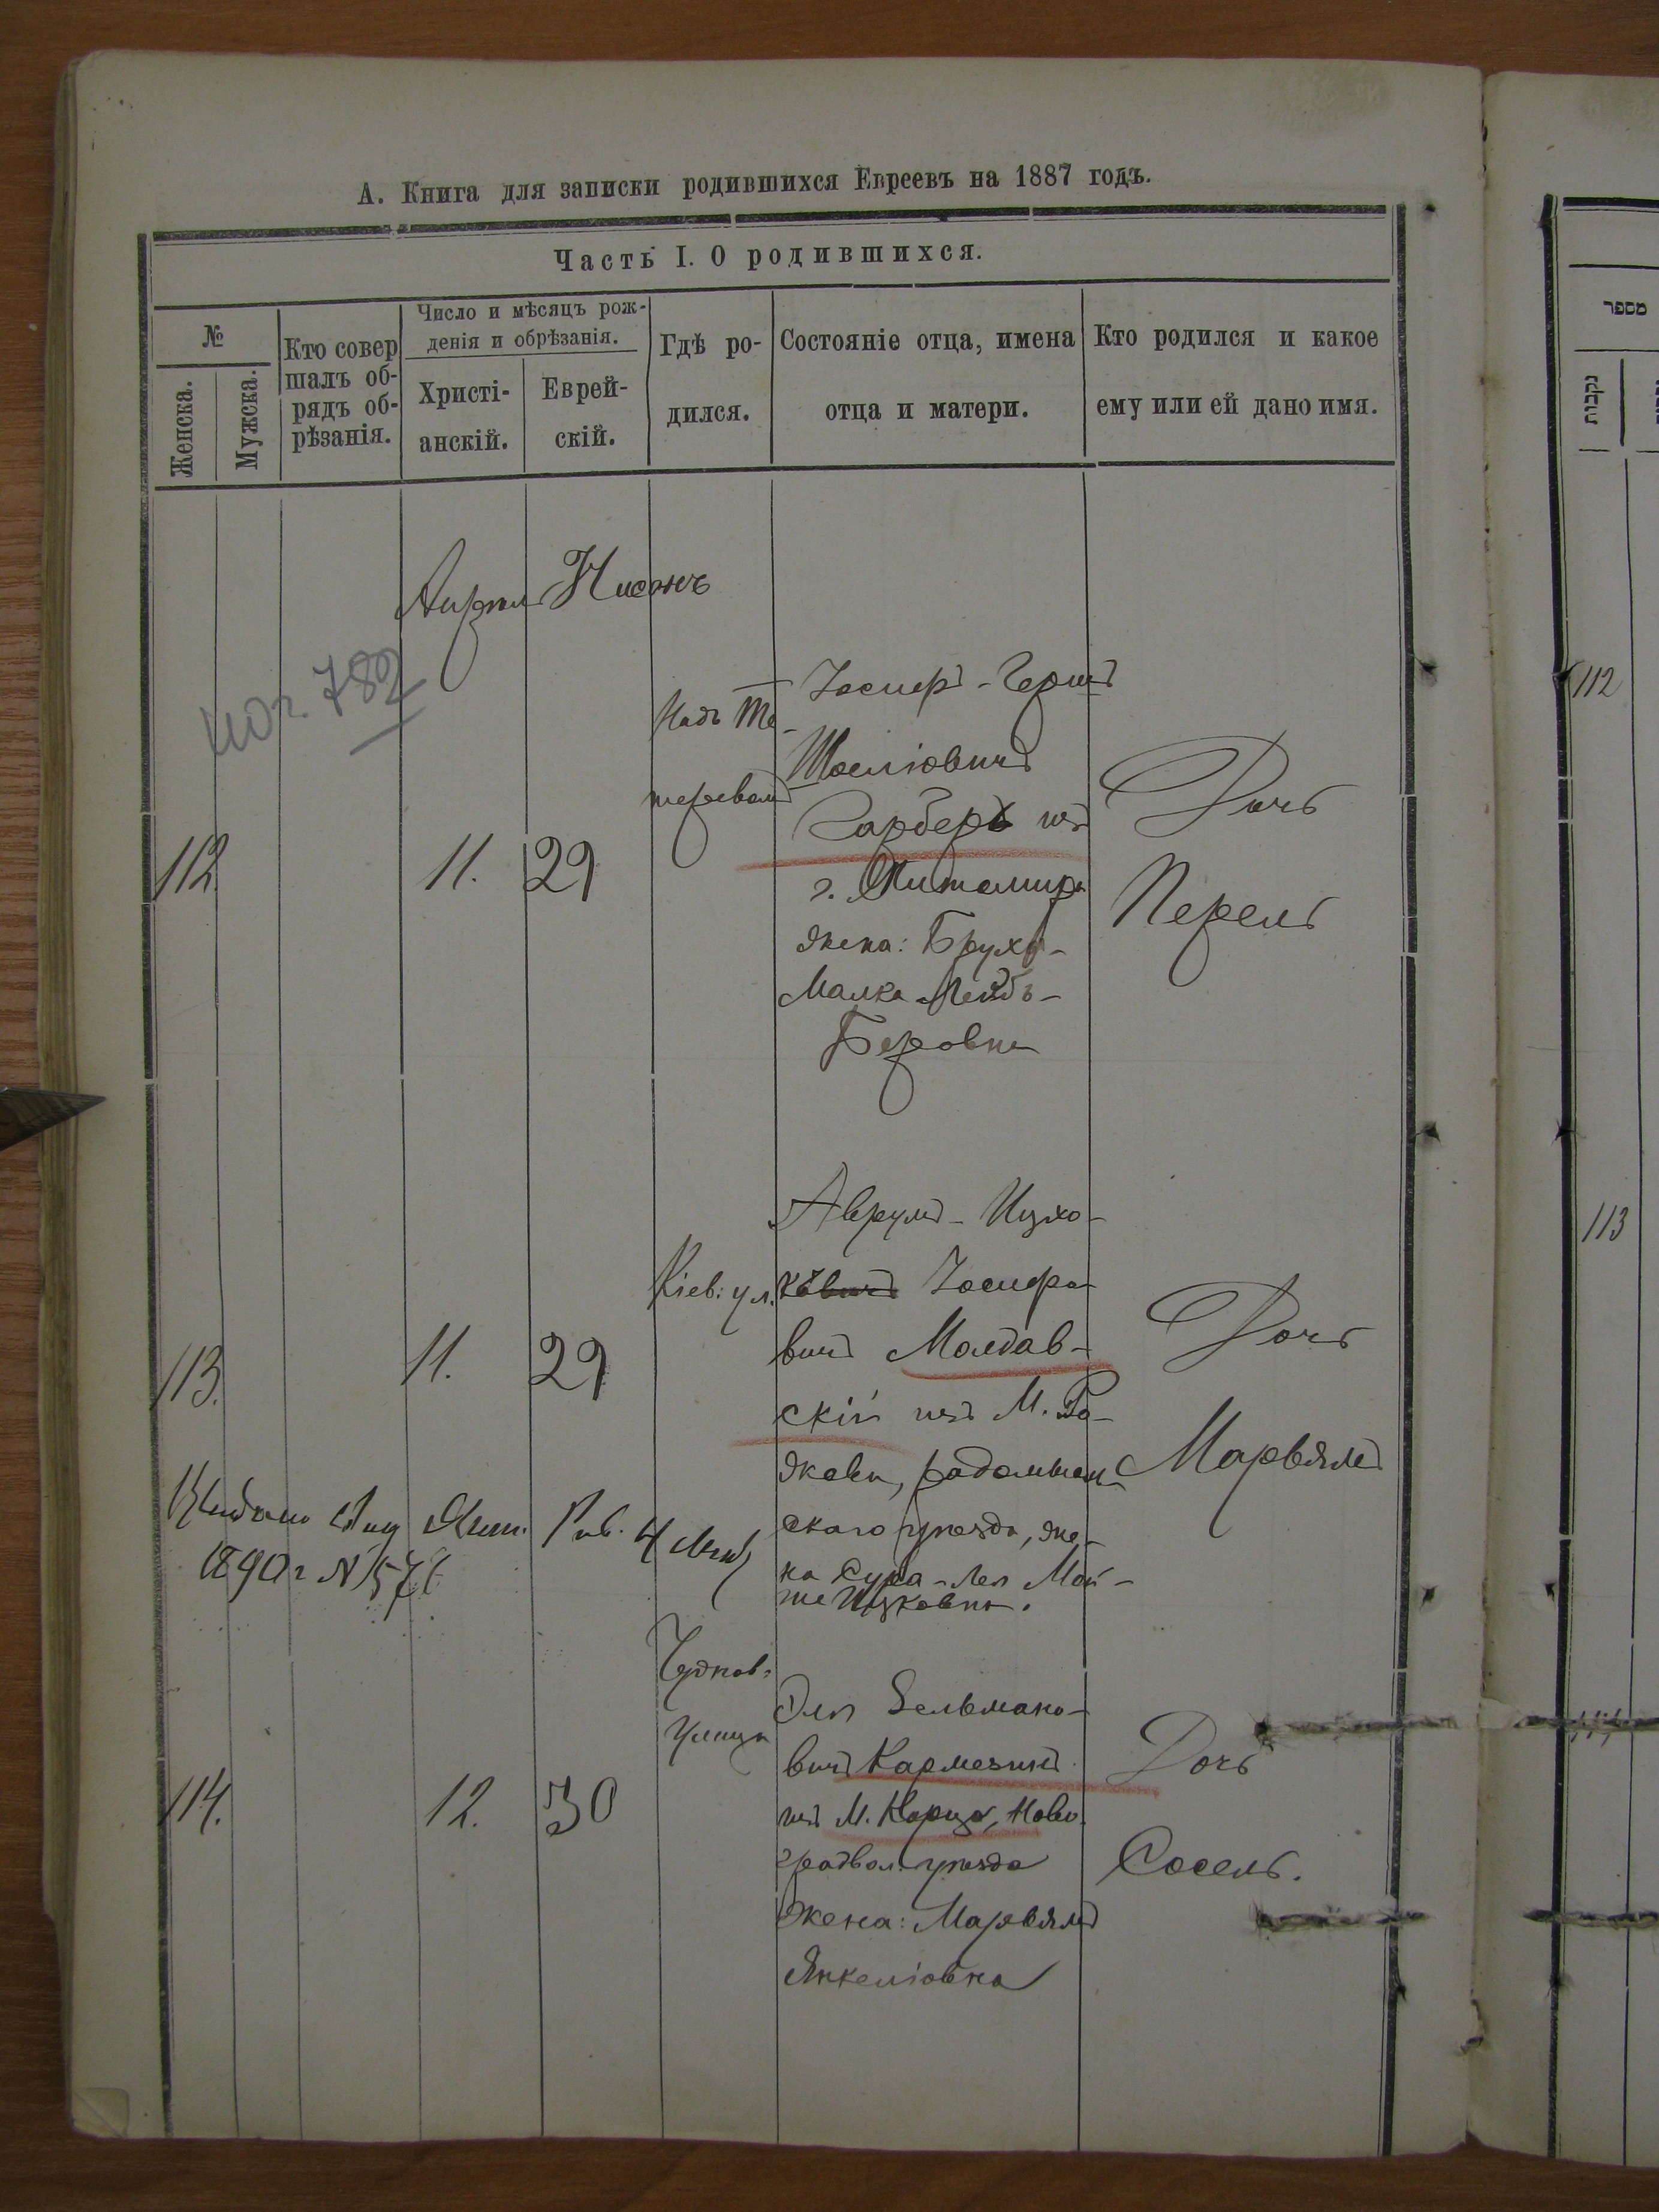 А. Книга для записки родившихся Евреевъ на 1887 годъ.
Часть I. О родившихся.
№
Женска.
Мужска.
Кто совер
шалъ об-
рядъ об-
рѣзанія.
Число и мѣсяцъ рож-
денія и обрѣзанія.
Христі-
анскій.
Еврей-
скій.
Гдѣ ро-
дился.
Состояніе отца, имена
отца и матери.
Кто родился и какое
ему или ей дано имя.
Апрель Нисонъ
782
112.
11.
29
Надъ Те-
теревомъ
Іосифъ-Гершъ
Шоеліовичъ
Гарберъ изъ
г. Житомира
жена: Бруха-
Малка Лейбъ-
Беровна
Дочь
Перель
113.
11.
29
Кіев: ул.
Аврумъ-Ицхо-
къ Іосифо-
вичъ Молдав-
скій изъ М. Ро-
жева, радомысль-
скаго уѣзда, же-
на Сура-Лея Мой-
ше Ицковна.
Дочь
Марьямъ
1890 г. №
114.
12.
30
Чудков.
Улица
Эля Зельмано-
вичъ Кармезинъ
изъ М. Корца, Ново-
градвол. уѣзда
Жена: Марьямъ
Янкеліовна
Дочь
Сосель.
מספר
נקבות
112
113